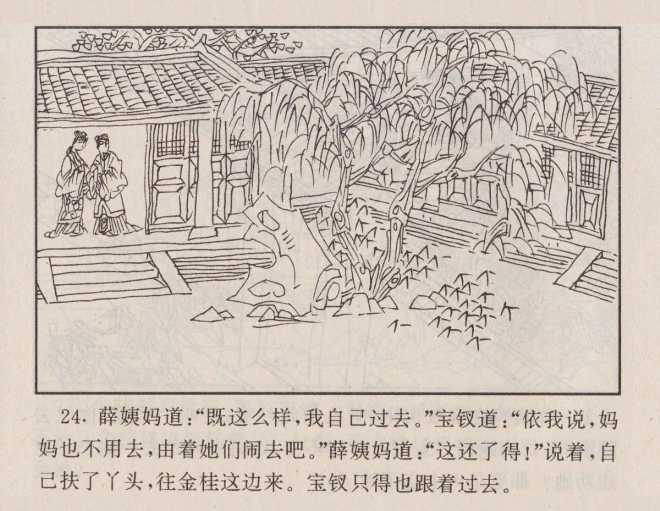 24. 薛姨妈道:“既这么样,我自己过去。”宝钗道:“依我说,妈
妈也不用去,由着她们闹去吧。”薛姨妈道:“这还了得!”说着,自
己扶了丫头,往金桂这边来。宝钗只得也跟着过去。